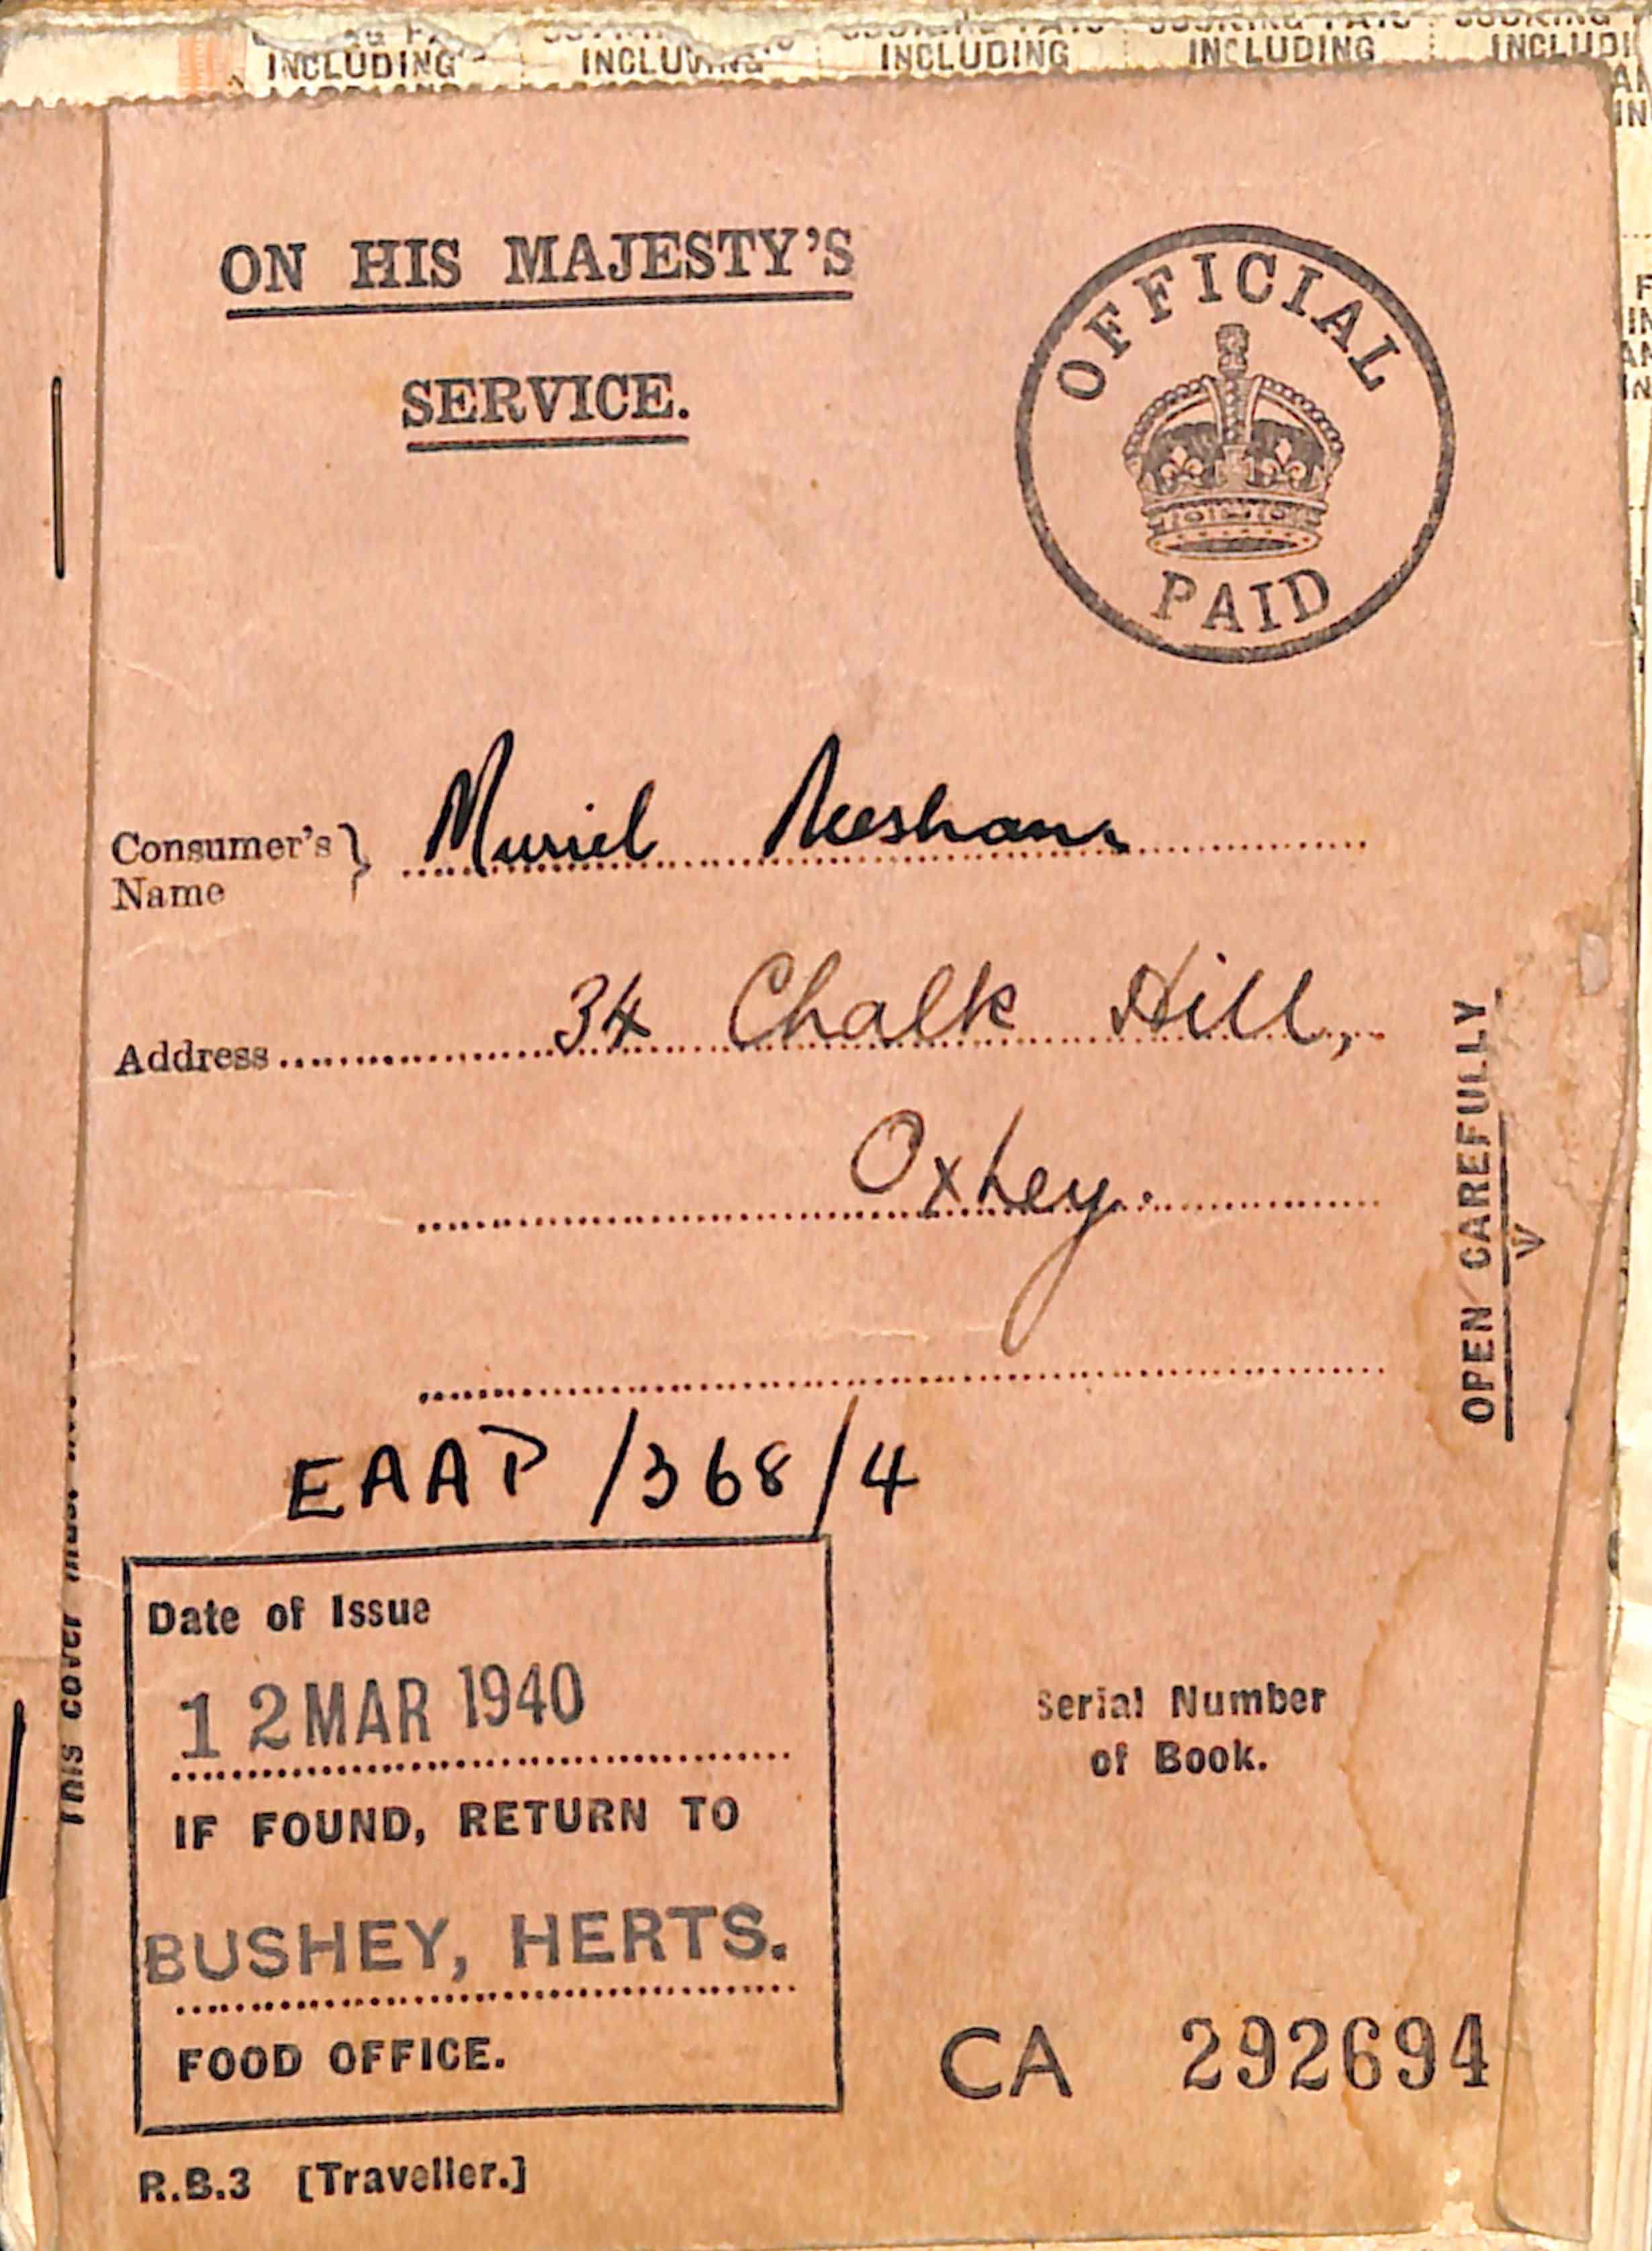 INCLUDING INCLUDING INCLUDING INCLUDING
ON HIS MAJESTY'S
SERVICE.
OFFICIAL
PAID
Consumer's
Name
Muriel
Address 34 Chalk Hill,
Oxhey.
OPEN CAREFULLY
EAAP/368/4
Date of Issue
12 MAR 1940
IF FOUND, RETURN TO
BUSHEY, HERTS.
FOOD OFFICE.
Serial Number
of Book.
CA 292694
R.B.3 [Traveller.]
This cover